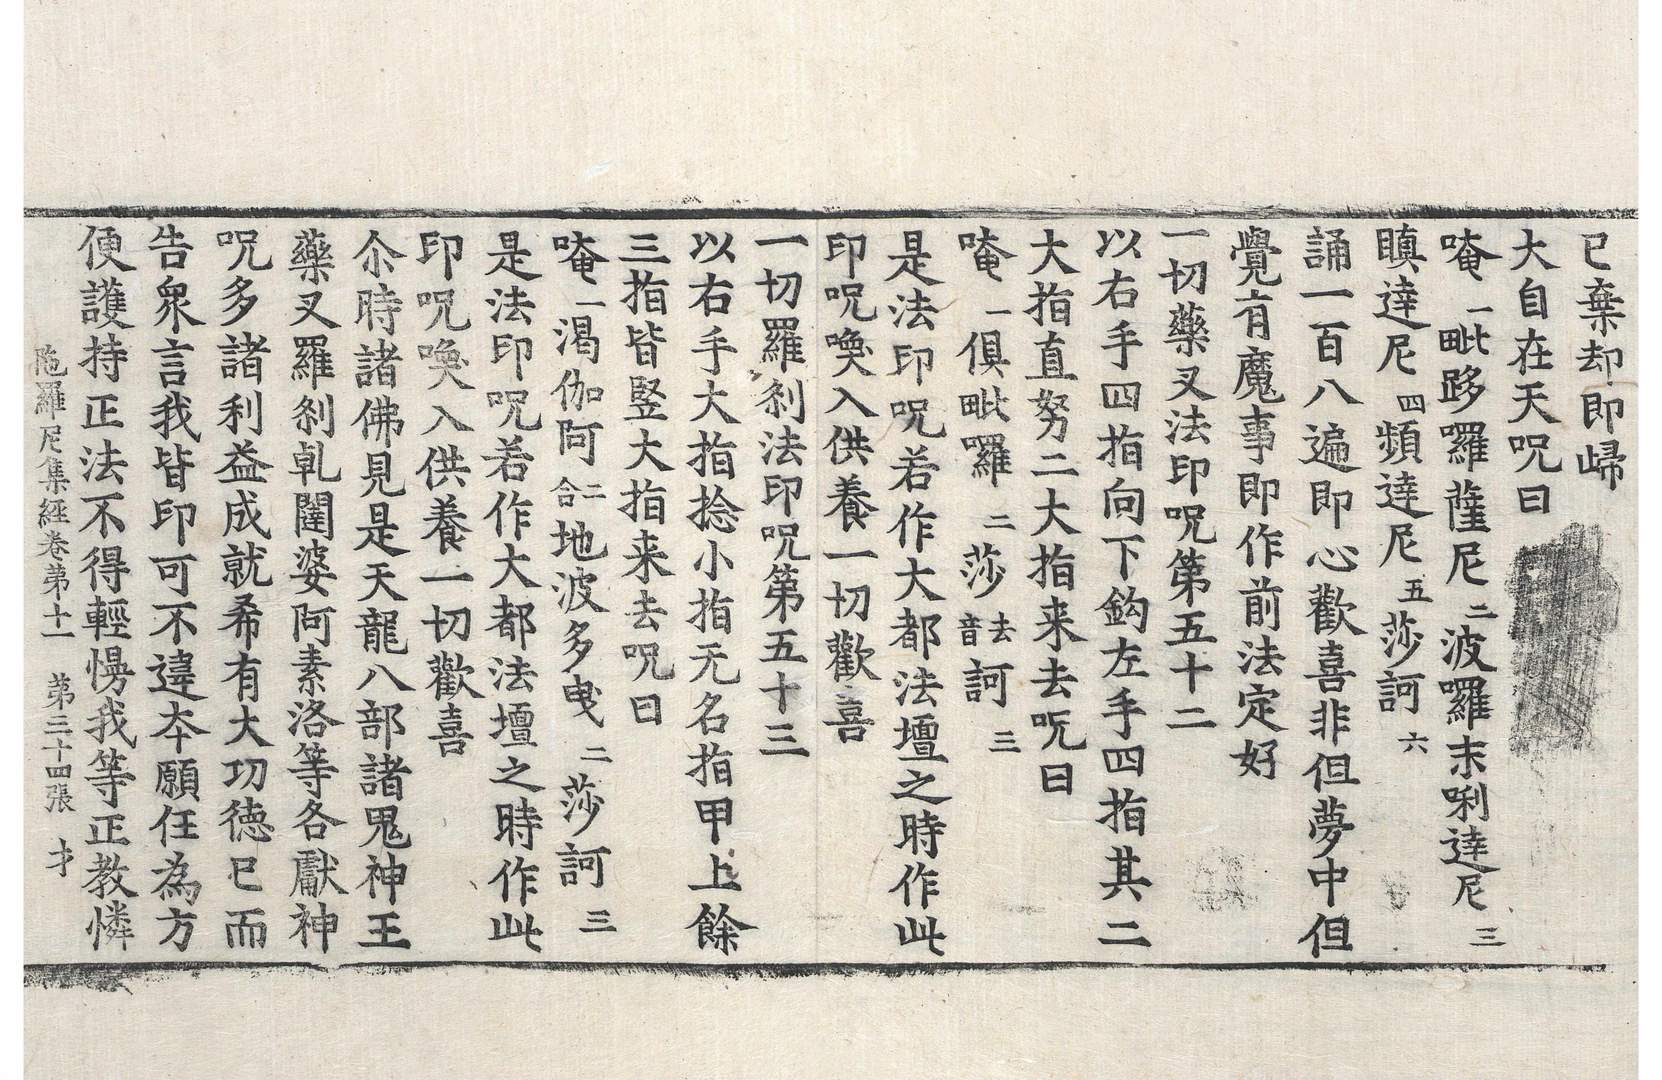 已棄却即歸
大自在天呪曰
唵一毗跢囉薩尼二波囉末唎達尼三
瞋達尼四頻達尼五莎訶六
誦一百八遍即心歡喜非但夢中但
覺有魔事即作前法定好
一切藥叉法印呪第五十二
以右手四指向下鈎左手四指其二
大指直努二大指来去呪曰
唵一俱毗囉二莎去音訶三
是法印呪若作大都法壇之時作此
印呪喚入供養一切歡喜
一切羅刹法印呪第五十三
以右手大指捻小指无名指甲上餘
三指皆竪大指来去呪曰
唵一渴伽阿二合地波多曳二莎訶三
是法印呪若作大都法壇之時作此
印呪喚入供養一切歡喜
尒時諸佛見是天龍八部諸鬼神王
藥叉羅刹乹闥婆阿素洛等各獻神
呪多諸利益成就希有大功德已而
告衆言我皆印可不違本願任為方
便護持正法不得輕慢我等正教憐
陁羅尼集經卷第十一 第三十四張 才